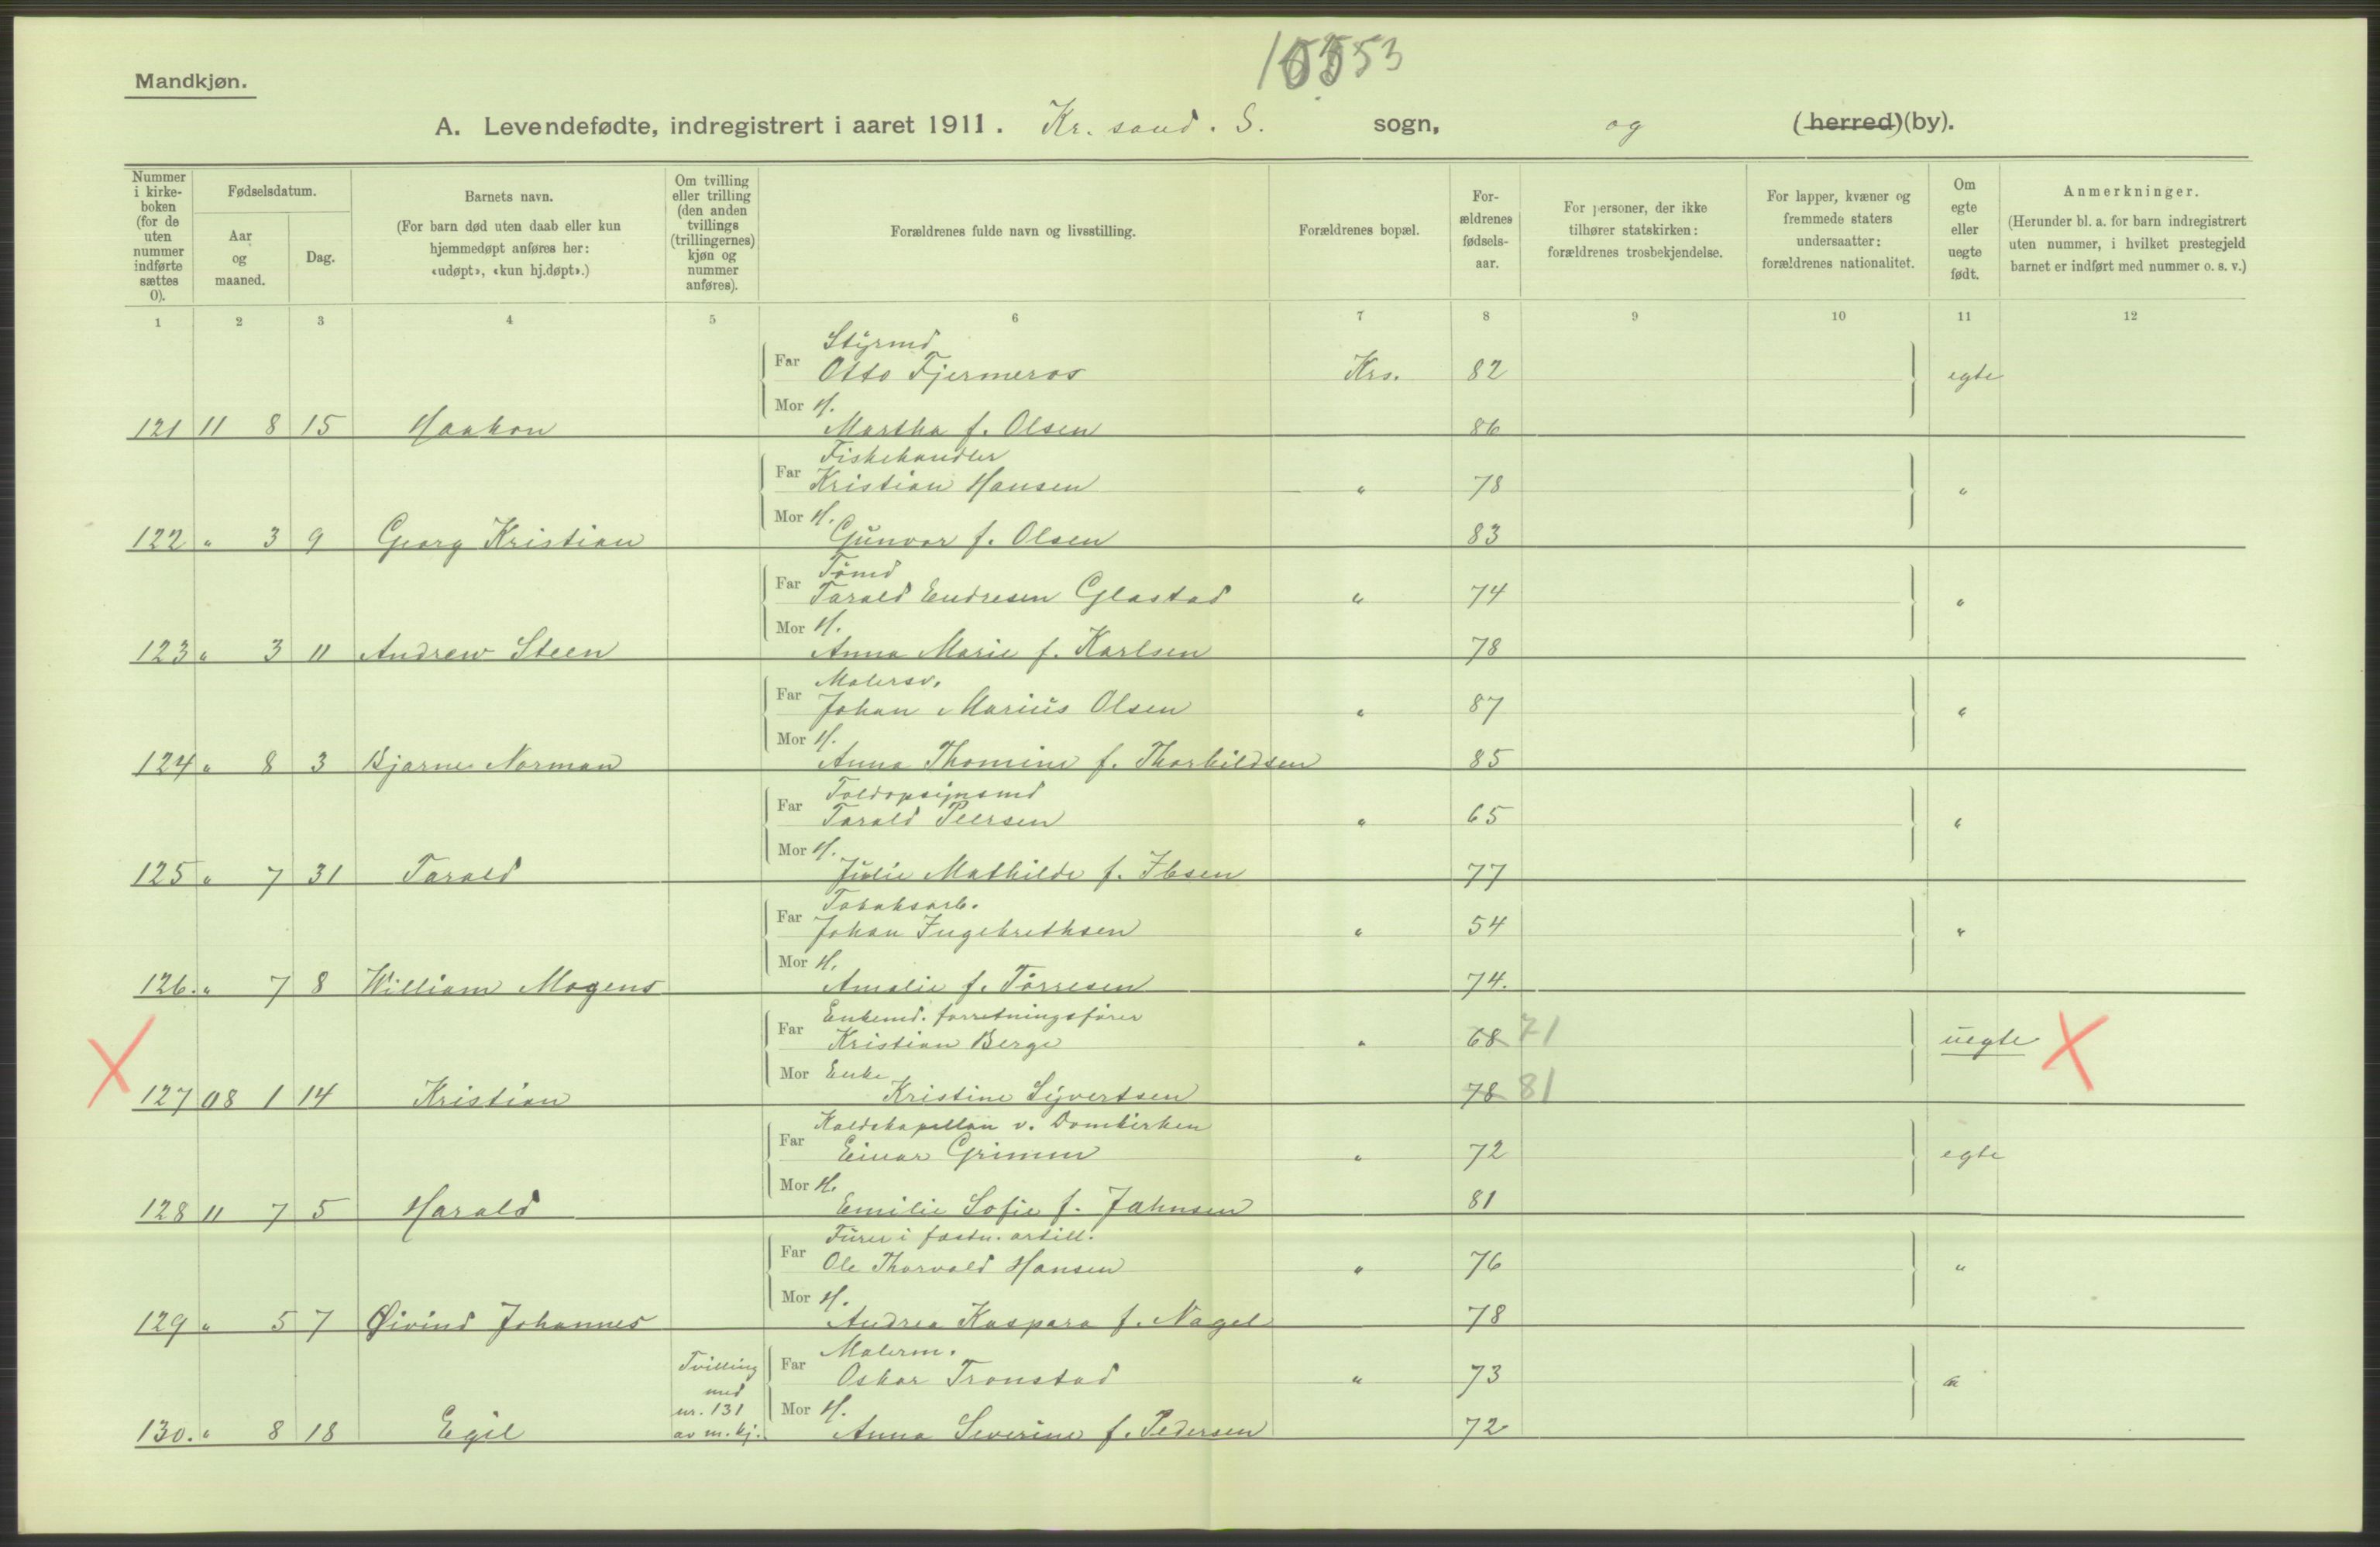 Mandkjøn.
A. Levendefødte, indregistrert i aaret 1911. Kr. sand. S. sogn, og (herred) (by).
Nummer i kirke-boken (for de uten nummer indførte sættes 0).
Fødselsdatum.
Aar og maaned.
Dag.
Barnets navn.
(For barn død uten daab eller kun hjemmedøpt anføres her: «udøpt», «kun hj.døpt».)
Om tvilling eller trilling (den anden tvillings (trillingernes) kjøn og nummer anføres).
Forældrenes fulde navn og livsstilling.
Forældrenes bopæl.
For-ældrenes fødsels-aar.
For personer, der ikke tilhører statskirken: forældrenes trosbekjendelse.
For lapper, kvæner og fremmede staters undersaatter: forældrenes nationalitet.
Om egte eller uegte født.
Anmerkninger.
(Herunder bl. a. for barn indregistrert uten nummer, i hvilket prestegjeld barnet er indført med nummer o. s. v.)
1 2 3 4 5 6 7 8 9 10 11 12
Styrmd
Far Otto Fjermeros Krs. 82 egte
Mor H.
121 11 8 15 Haakon Martha f. Olsen 86
Fiskehandler
Far Kristian Hansen " 78 "
Mor H.
122 " 3 9 Georg Kristian Gunvor f. Olsen 83
Tømd
Far Tarald Endresen Glastad " 74 "
Mor H.
123 " 3 11 Andrew Steen Anna Marie f. Karlsen 78
Malersv.
Far Johan Marius Olsen " 87 "
Mor H.
124 " 8 3 Bjarne Norman Anna Thomine f. Thorkildsen 85
Toldopsynsmd
Far Tarald Peersen " 65 "
Mor H.
125 " 7 31 Tarald Julie Mathilde f. Ibsen 77
Tobaksarb.
Far Johan Ingebrethsen " 54 "
Mor H.
126. " 7 8 William Mogens Amalie f. Tørresen 74.
Enkemd. forretningsfører
Far Kristian Berge " 68 71 uegte
Mor Enke
127 08 1 14 Kristian Kristine Syvertsen 78 81
Kaldskapellan v. Domkirken
Far Einar Grimm " 72 egte
Mor H.
128 11 7 5 Harald Emilie Sofie f. Jahnsen 81
Furer i festn. artill.
Far Ole Thorvald Hansen " 76 "
Mor H.
129 " 5 7 Øivind Johannes Andrea Kaspara f. Nagel 78
Malerm.
Far Oskar Tronstad " 73 "
Tvilling
med
nr. 131
Mor H.
130. " 8 18 Egil av m. kj. Anna Severine f. Pedersen 72